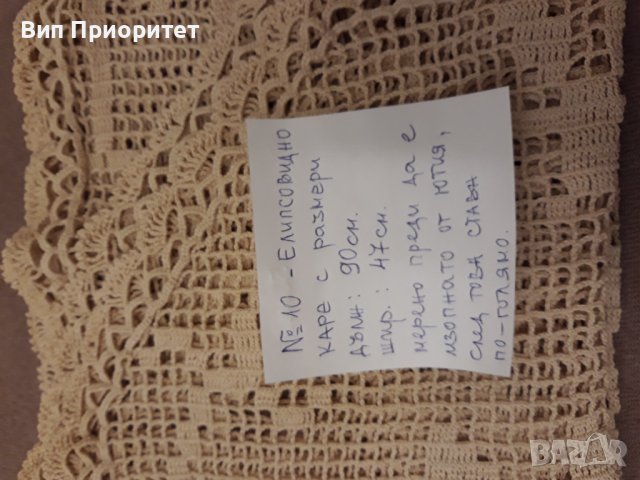 Вип Приоритет
№10 - Елипсовидно
каре с размери
дълж: 90см.
шир.: 47см.
мерено преди да е
изопнато от ютия,
след това става
по-голямо.
BAZAR